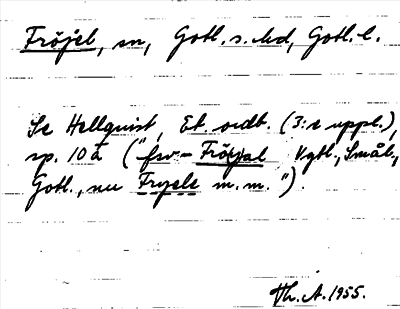 Fröjel, sn, Gotl. s. hd, Gotl. l.
Se Hellquist, Et. ordb. (3:e uppl.),
sp. 10 a ("fsv- Fröijal Vgtl., Smål.,
Gotl., nu Fryele m.m.").
Th. A. 1955.